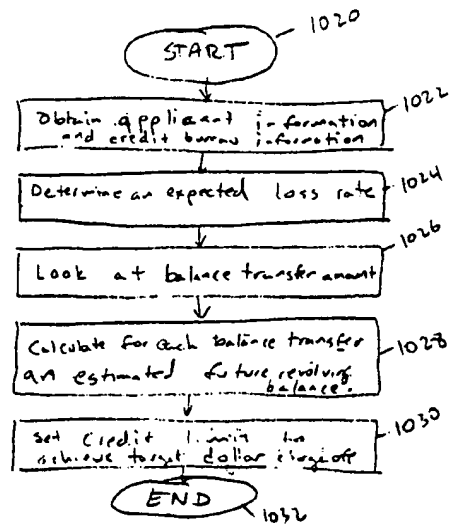 START
1020
Obtain applicant information
and credit bureau information
1022
Determine an expected loss rate
1024
Look at balance transfer amount
1026
Calculate for each balance transfer
an estimated future revolving
balance.
1028
Set credit limit to
achieve target dollar chargeoff
1030
END
1032